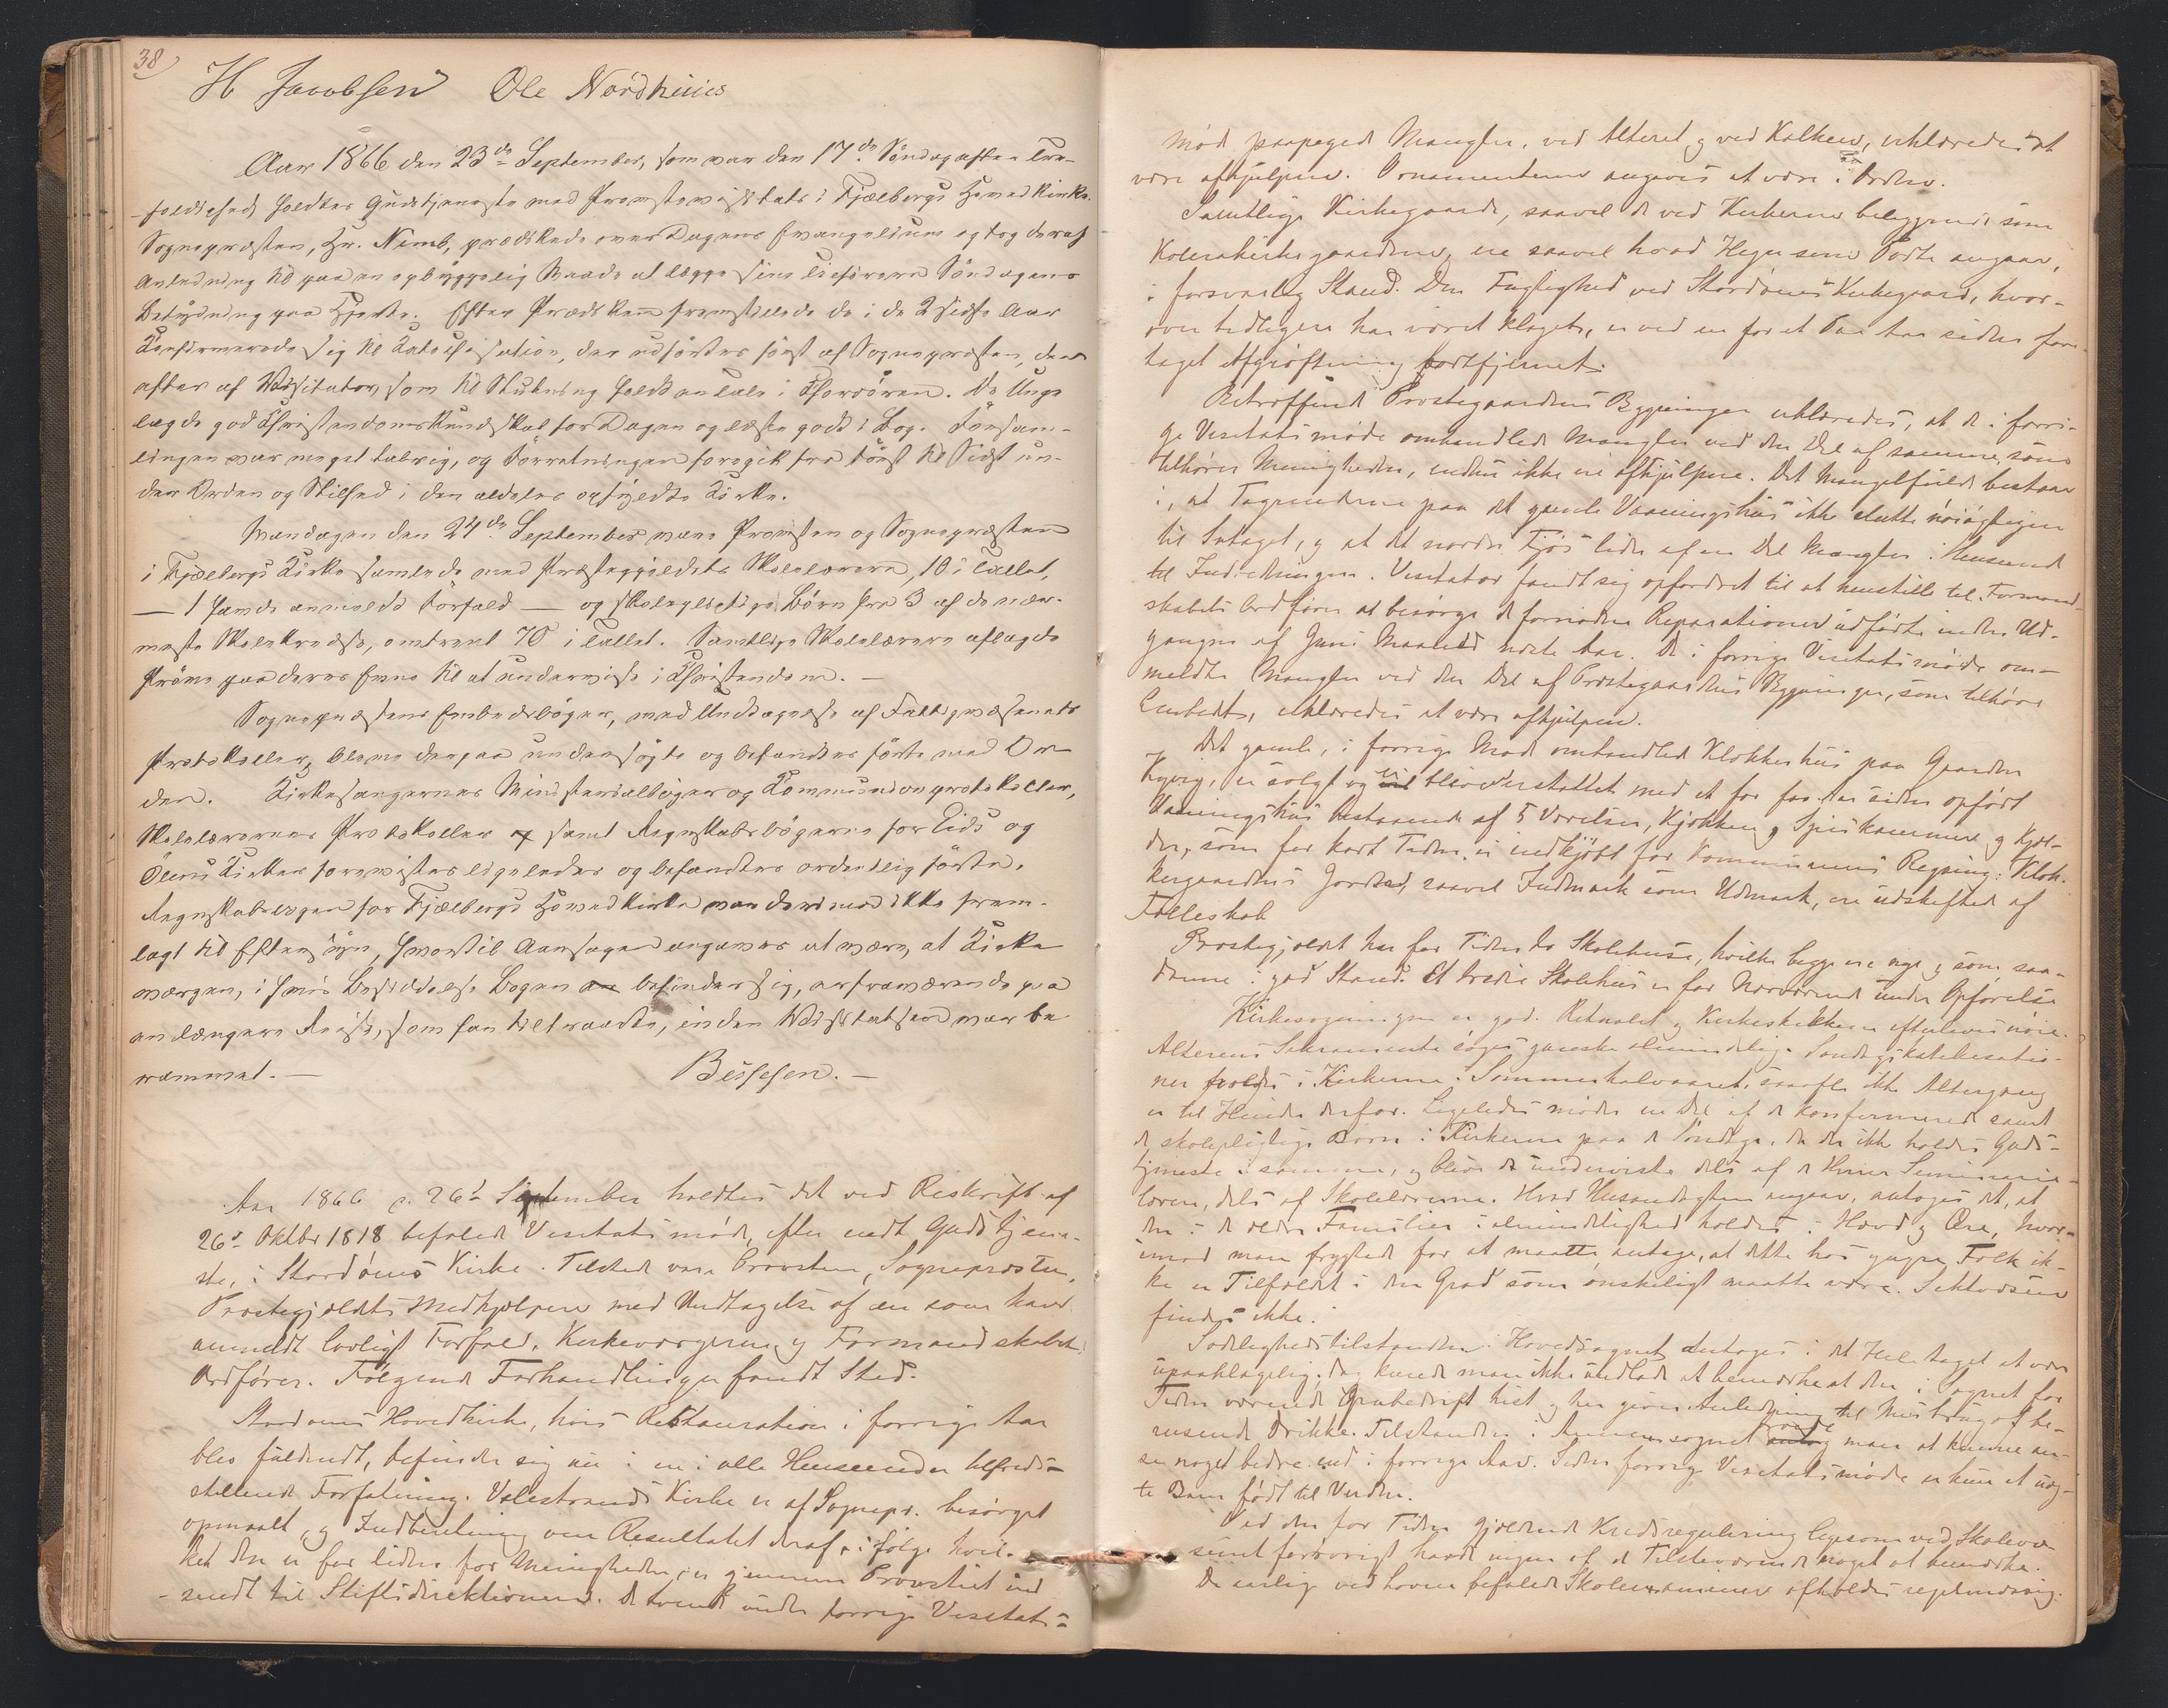 38
H Jacobsen Ole Nordhuus
Aar 1866 den 23de September, som var den 17de Söndag efter Tre-
foldighed, holdtes Gudstjeneste med Provstevisitats i Fjælbergs Hovedkirke.
Sognepræsten, Hr. Nimb, prædikede over Dagens Evangelium og tog deraf
Anledning til paa en opbyggelig Maade at lægge sine Tilhörere Söndagens
Betydning paa Hjerte. Efter Prædiken fremstillede de i de 2 sidste Aar
Konfirmerede sig til Katechisation, der udförtes först af Sognepræsten, der-
efter af Visitator, som til Slutning holdt en Tale i Chordören. De Unge
lagde god Christendomskundskab for Dagen og læste godt i Bog. Forsam-
lingen var meget talrig, og Forretningen foregik fra Först til Sidst un-
der Orden og Stilhed i den aldeles opfyldte Kirke.
Mandagen den 24de September vare Provsten og Sognepræsten
i Fjælbergs Kirke samlede med Præstegjeldets Skolelærere, 10 i Tallet,
— 1 havde anmeldt Forfald — og skolepligtige Börn fra 3 af de nær-
meste Skolekredse, omtrent 70 i Tallet. Samtlige Skolelærere aflagde
Pröve paa deres Evne til at undervise i Christendom. —
Sognepræstens Embedsböger, med Undtagelse af Fattigvæsenets
Protokoller, bleve derpaa undersögte og befandtes förte med Or-
den. Kirkesangernes Ministerialböger og Kommunionsprotokoller,
Skolelærernes Protokoller samt Regnskabsbögerne for Eids og
Ölens Kirker forevistes ligeledes og befandtes ordentlig förte.
Regnskabsbogen for Fjælbergs Hovedkirke var derimod ikke frem-
lagt til Eftersyn, hvortil Aarsagen angaves at være, at Kirke-
værgen, i hvis Besiddelse Bogen befinder sig, er fraværende paa
en længere Reise, som han tiltraadte, inden Visitatsen var be-
rammet. — Beissen. —
Aar 1866 d. 26d September holdtes det ved Reskrift af
26d Oktbr 1818 befalede Visitatsmöde, efter endt Gudstjene-
ste, i Stordöens Kirke. Tilstede vare Provsten, Sognepræsten,
Præstegjeldets Medhjelpere med Undtagelse af en som havde
anmeldt lovligt Forfald, Kirkeværgerne og Formandskabets
Ordförer. Fölgende Forhandlinger fandt Sted.
Stordöens Hovedkirke, hvis Restauration i forrige Aar
blev fuldendt, befinder sig nu i en i alle Henseender tilfreds-
stillende Forfatning. Valestrands Kirke er af Sognepr. besörget
opmaalt, og Indberetning om Resultatet deraf, ifölge hvil-
ket den er for liden for Menigheden, er gjennem Provstiet ind-
sendt til Stiftsdirektionen. De tvende under forrige Visitats-
möde paapegede Mangler, ved Alteret og ved Kalken, erklæredes at
være afhjulpne. Ornamenterne angaves at være i Orden.
Samtlige Kirkegaarde, saavel de ved Kirkerne beliggende som
Kolerakirkegaardene, ere saavel hvad Hegn som Porte angaar,
i forsvarlig Stand. Den Fugtighed ved Stordöens Kirkegaard, hvor-
over tidligere har været klaget, er ved en for et Par Aar siden fore-
taget Afgröftning bortfjernet.
Betræffende Præstegaardens Bygninger erklæredes, at de i forri-
ge Visitatsmöde omhandlede Mangler ved den Del af samme, som
tilhörer Menigheden, endnu ikke ere afhjulpne. Det Mangelfulde bestaar
i, at Tagrenderne paa det gamle Vaaningshuus ikke slutte nöiagtigen
til Sutaget, og at det nordre Fjös lider af en Del Mangler i Henseende
til Indredningen. Visitator fandt sig opfordret til at henstille til Formand-
skabets Ordförer at besörge de fornödne Reparationer udförte inden Ud-
gangen af Juni Maaned næste Aar. De i forrige Visitatsmöde om-
meldte Mangler ved den Del af Præstegaardens Bygninger, som tilhörer
Embedet, erklæredes at være afhjulpne.
Det gamle, i forrige Möde omhandlede Klokkerhuus paa Gaarden
Kyvig, er solgt og blevet erstattet med et for faa Aar siden opfört
Vaaningshuus bestaaende af 5 Værelser, Kjökken og Spiskammer og Kjæl-
der, som for kort Tid siden er indkjöbt for Kommunens Regning. Klok-
kergaardens Jorder, saavel Indmark som Udmark, ere udskiftede af
Fælleskab.
Præstegjeldet har for Tiden to Skolehuse, hvilke begge ere nye og som saa-
danne i god Stand. Et tredie Skolehuus er for Nærværende under Opförelse.
Kirkesögningen er god. Ritualet og Kirkeskikkene efterleves nöie.
Alterens Sakramente söges ganske almindelig. Söndagskatekisatio-
ner holdes i Kirkerne i Sommerhalvaaret, saafremt ikke Altergang
er til Hinder derfor. Ligeledes möder en Del af de konfirmerede samt
de skolepligtige Börn i Kirkerne paa de Söndage, da der ikke holdes Guds-
tjeneste i samme, og blive de underviste dels af Seminarie-
læreren, dels af Skolelærerne. Hvad Husandagten angaar, antoges det, at
den i de ældre Familier i Almindelighed holdes i Hævd og Ære, hvor-
imod man frygtede for at maatte antage, at dette hos yngre Folk ik-
ke er Tilfældet i den Grad som önskeligt maatte være. Sektvæsen
findes ikke.
Sædelighedstilstanden i Hovedsognet antoges i det Hele taget at være
upaaklagelig, dog kunde man ikke undlade at bemærke at den i Sognet for
Tiden værende Grubedrift hist og her giver Anledning til Misbrug af be-
rusende Drikke. Tilstanden i Annexsognet troede man at kunne an-
se noget bedre end i forrige Aar. Siden forrige Visitatsmöde er kun et uæg-
te Barn födt til Verden.
Ved den for Tiden gjældende Kredsregulering ligesom ved Skolevæ-
senet forövrigt havde ingen af de Tilstedeværende noget at bemærke.
De aarlige ved Loven befalede Skoleexaminer afholdes regelmæssig.